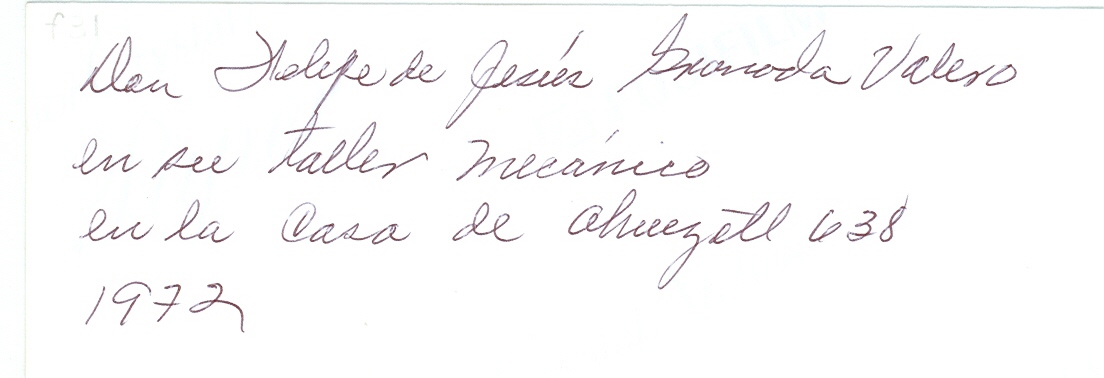 Don Felipe de Jesús Granada Valero
en su taller mecánico
en la casa de 638
1972